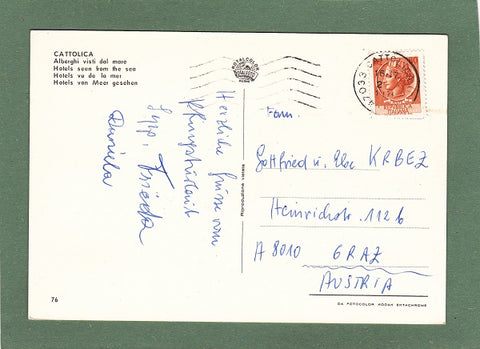 CATTOLICA
Alberghi visti dal mare
Hotels seen from the sea
Hotels vu de la mer
Hotels von Meer gesehen
Herzliche Grüsse vom
Sepp, Frieda
Daniela
Riproduzione vietata
Fam.
Gottfried u. Else KRBEZ
Heinrichstr. 112 b
A 8010 GRAZ
AUSTRIA
47033
REPUBBLICA
ITALIANA
76
DA FOTOCOLOR KODAK EKTACHROME